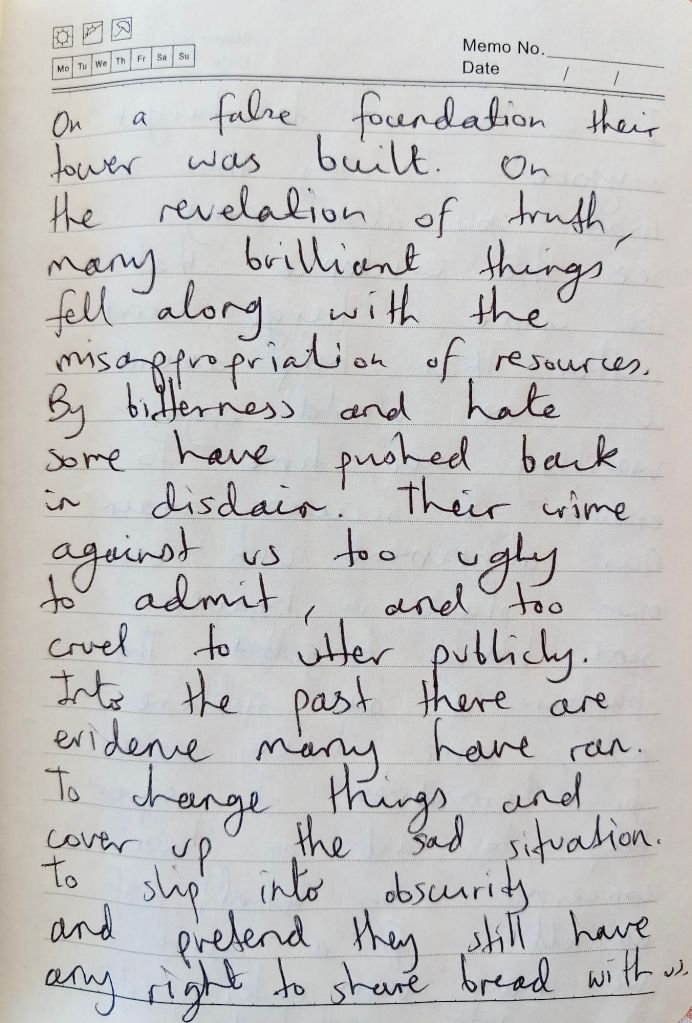 Mo Tu We Th Fr Sa Su
Memo No.
Date / /
On a false foundation their
tower was built. On
the revelation of truth,
many brilliant things
fell along with the
misappropriation of resources.
By bitterness and hate
some have pushed back
in disdain. Their crime
against us too ugly
to admit, and too
cruel to utter publicly.
Into the past there are
evidence many have ran.
To change things and
cover up the sad situation.
To slip into obscurity
and pretend they still have
any right to share bread with us.